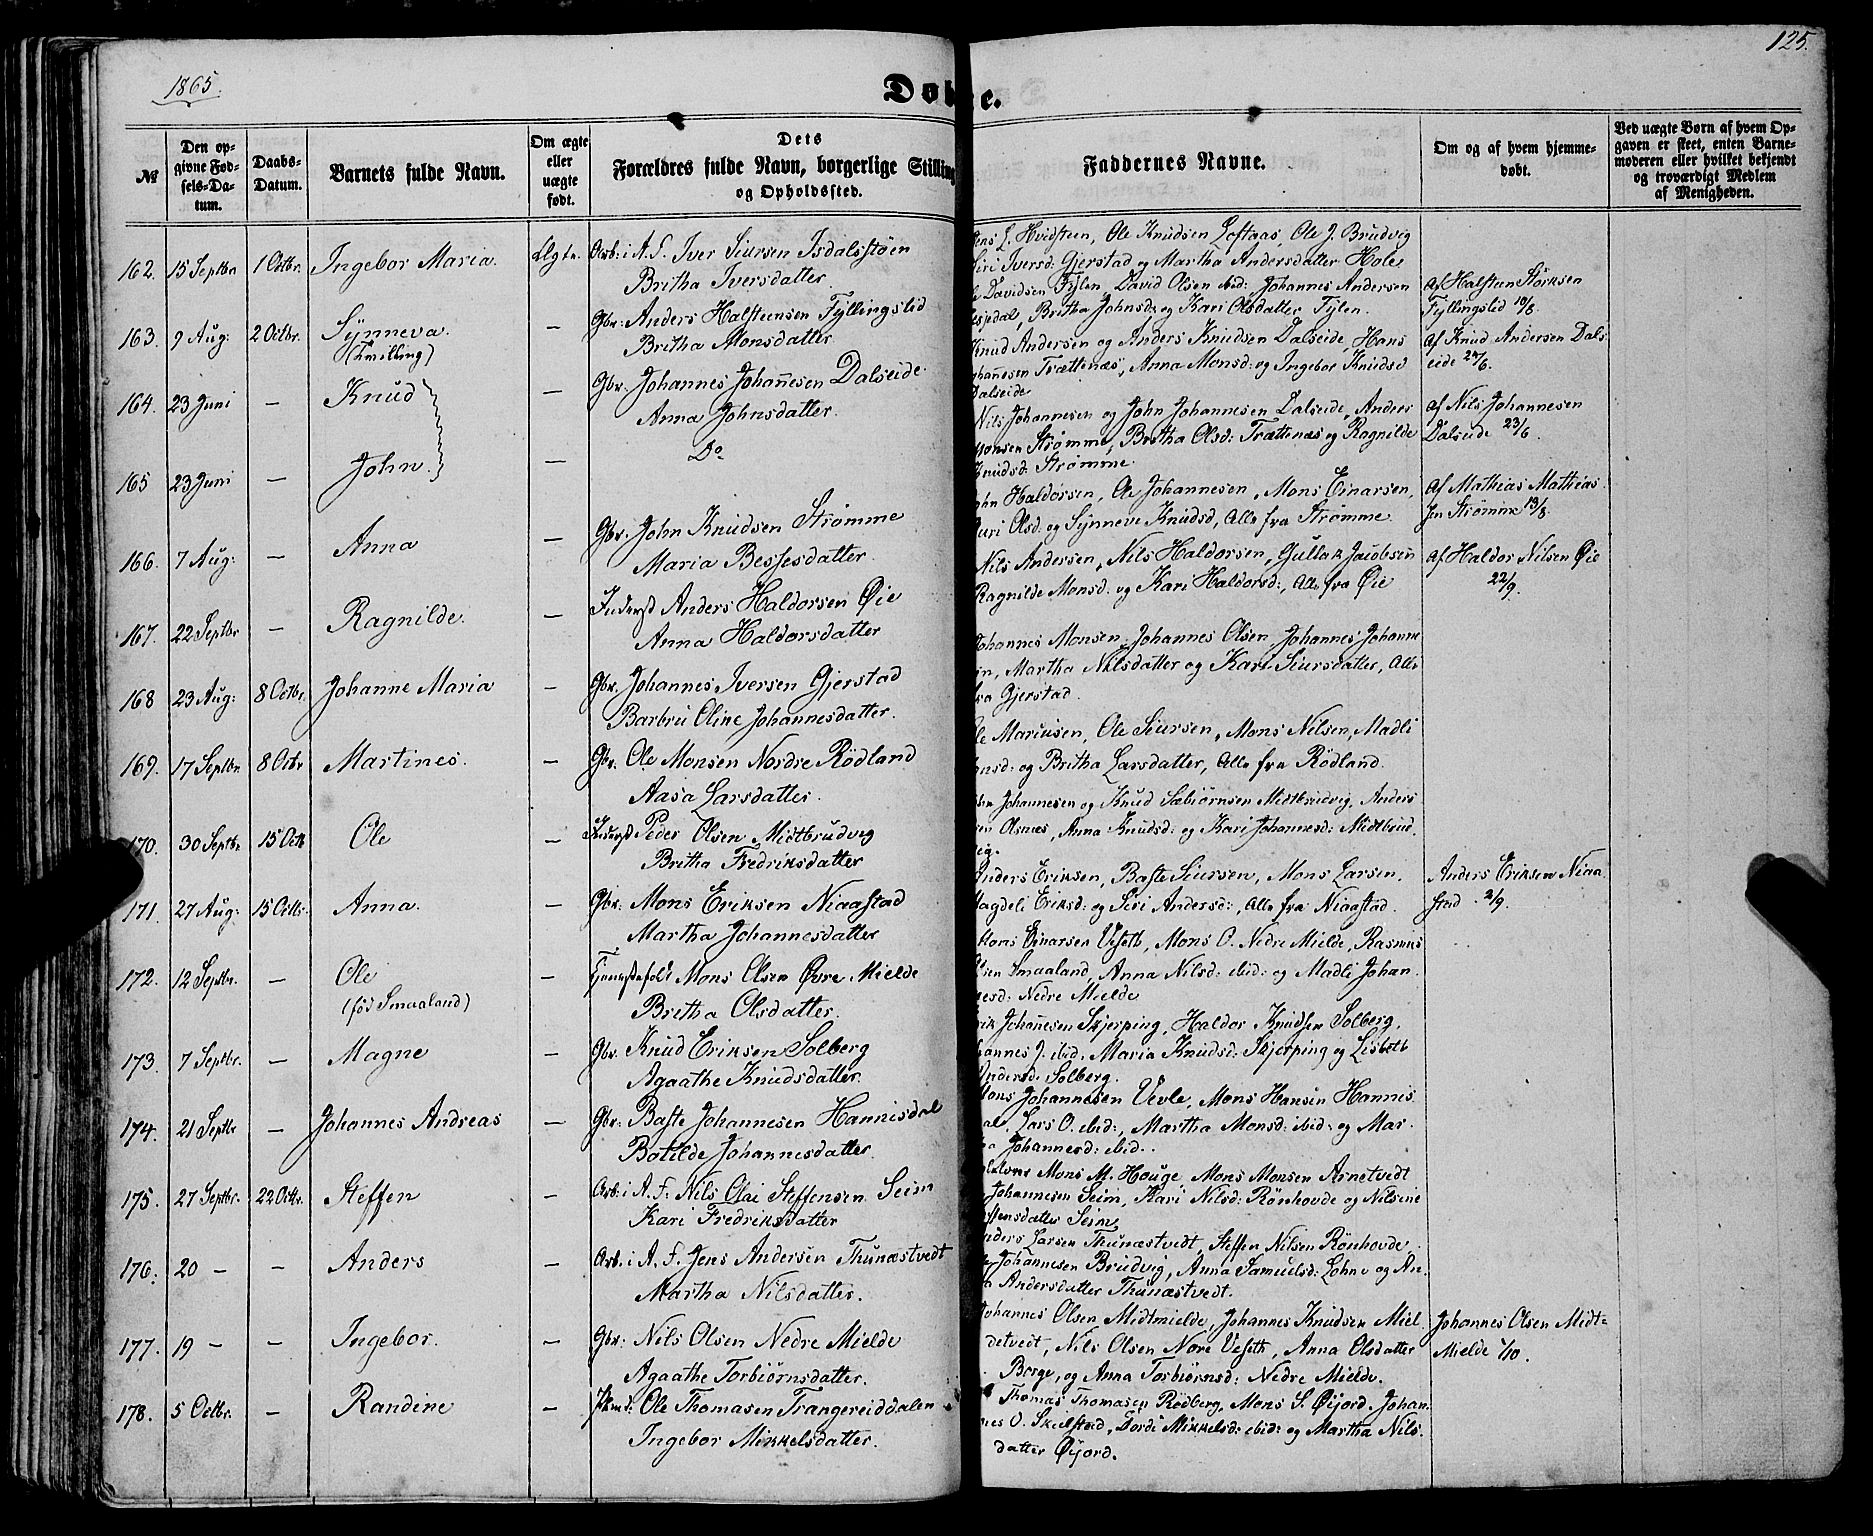 125.
1865.
Døbte.
№
Den opgivne Fødsels-Datum.
Daabs-Datum.
Barnets fulde Navn.
Om ægte eller uægte født.
Dets Forældres fulde Navn, borgerlige Stilling og Opholdssted.
Faddernes Navne.
Om og af hvem hjemmedøbt.
Ved uægte Børn af hvem Opgaven er skeet, enten Barnemoderen eller hvilket bekjendt og troværdigt Medlem af Menigheden.
162. 15 Septbr 1 Octbr. Ingebor Maria. Ægte. Arb: i A. F. Iver Siursen Isdalsstøen
Britha Iversdatter.
L. Hvidsteen, Ole Knudsen Loftaas, Ole J. Brudvig
Siri Iversd: Gjerstad og Martha Andersdatter Hole
163. 9 Aug: 2 Octbr. Synneva. (Tvilling) — Gbr: Anders Halsteensen Fyllingslid
Britha Monsdatter
Davidsen Fylen, David Olsen ibid: Johannes Andersen
Britha Johnsd: og Kari Olsdatter Fylen.
af Halsten Størksen
Fyllingslid 10/8.
164. 23 Juni — Knud — Gbr. Johannes Johannesen Dalseide.
Anna Johnsdatter.
Knud Andersen og Anders Knudsen Dalseide, Hans
Johannesen Trættenæs, Anna Monsd: og Ingebor Knudsd
Dalseide
af Knud Andersen Dalseide 24/6.
165 23 Juni — John. — Do
Nils Johannesen og John Johannesen Dalseide, Anders
Monsen Strømme, Britha Olsd: Trættenæs og Ragnilde
Knudsd: Strømme.
af Nils Johannesen
Dalseide 23/6.
166. 7 Aug: — Anna — Gbr. John Knudsen Strømme
Maria Bessesdatter.
John Haldorsen, Ole Johannesen, Mons Einarsen,
Guri Olsd. og Synneve Knudsd, Alle fra Strømme.
af Mathias Mathiassen Strømme 13/8.
167. 22 Septbr — Ragnilde. — Inderst Anders Haldorsen Øie
Anna Haldorsdatter
Nils Andersen, Nils Haldorsen, Gullak Jacobsen
Ragnilde Monsd: og Kari Haldorsd:, Alle fra Øie
af Haldor Nilsen Øie
22/9.
168 23 Aug: 8 Octbr. Johanne Maria — Gbr. Johannes Iversen Gjerstad
Barbru Oline Johannesdatter.
Johannes Monsen, Johannes Olsen, Johannes Johannesen, Martha Nilsdatter og Kari Siursdatter, Alle
fra Gjerstad.
169. 17 Septbr 8 Octbr Martines. — Gbr. Ole Monsen Nordre Rödland
Aasa Larsdatter.
Ole Mariusen, Ole Siursen, Mons Nilsen, Madli
og Britha Larsdatter, Alle fra Rödland.
170. 30 Septbr 15 Octb Ole — Inderst Peder Olsen Midtbrudvig
Britha Fredriksdatter
Johannesen og Knud Sæbiørnsen Midtbrudvig, Anders
Olsnæs, Anna Knudsd: og Kari Johannesd: Midtbrudvig.
171. 27 Aug: 15 Octb. Anna. — Gbr: Mons Eriksen Niaastad
Martha Johannesdatter
Anders Eriksen, Baste Siursen, Mons Larsen,
Magdeli Eriksd: og Siri Andersd:, Alle fra Niaastad.
Anders Eriksen Niaastad 2/9.
172. 12 Septbr. — Ole (fød Smaaland) — Tjenestefolk Mons Olsen Øvre Mielde
Britha Olsdatter.
Mons Einarsen Veseth, Mons O. Nedre Mielde, Rasmus
Olsen Smaaland, Anna Nilsd: ibid: og Madli Johannesd: Nedre Mielde
173. 7 Septbr. — Magne — Gbr. Knud Eriksen Solberg
Agaathe Knudsdatter.
Erik Johanesen Skjerping, Haldor Knudsen Solberg,
Johannes J. ibid: Maria Knudsd: Skjerping og Lisbeth
Andersd: Solberg.
174. 21 Septbr — Johannes Andreas — Gbr: Baste Johannesen Hannisdal
Botilde Johannesdatter.
Mons Johannesen Vevle, Mons Hansen Hannisdal, Lars O. ibid:, Martha Monsd: ibid: og Martha Johannesd: ibid..
175. 27 Septbr. 22 Octbr. Steffen — Arb: i A. F. Nils Olai Steffensen Seim
Kari Fredriksdatter
Mons M. Houge, Mons Monsen Arnetvedt
Johannesen Seim, Kari Nilsd: Rönhovde og Nilsine
Steffensdatter Seim
176. 20 — — Anders — Arb. i A. F. Jens Andersen Thunæstvedt
Martha Nilsdatter.
Anders Larsen Thunæstvedt, Steffen Nilsen Rönhovde
Johannesen Brudvig, Anna Samuelsd: Lohne og Anna Andersdatter Thunæstvedt.
177. 19 — — Ingebor. — Gbr: Nils Olsen Nedre Mielde
Agaathe Torbiörnsdatter.
Johannes Olsen Midtmielde, Johannes Knudsen Mieldetvedt, Nils Olsen Nore Veseth, Anna Olsdatter
Borge, og Anna Torbiörnsd: Nedre Mielde.
Johannes Olsen Midt=
Mielde 1/10.
178. 5 Octbr. — Randine — Pkmd: Ole Thomasen Trangereiddalen
Ingebor Mikkelsdatter.
Thomas Thomasen Rødberg, Mons S. Øijord, Johannes O. Skulstad, Dordi Mikkelsd: ibid: og Martha Nilsdatter Øijord.